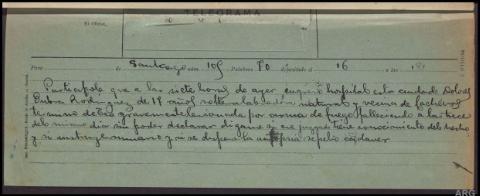 TELEGRAMA
El Oficial
Para de Santiago núm. 105 Palabras 80 depositado el 16 a las
Participole que a las siete horas de ayer ingresó hospital esta ciudad Dolores
Rodriguez de 18 años soltera labradora natural y vecina de
termino de gravemente lesionada por arma de fuego falleciendo a las trece
del mismo dia sin poder declarar digame si ese juzgado tiene conocimiento del hecho
y si instruye sumario y si se dispensa la autopsia sepelio cadaver
ARG